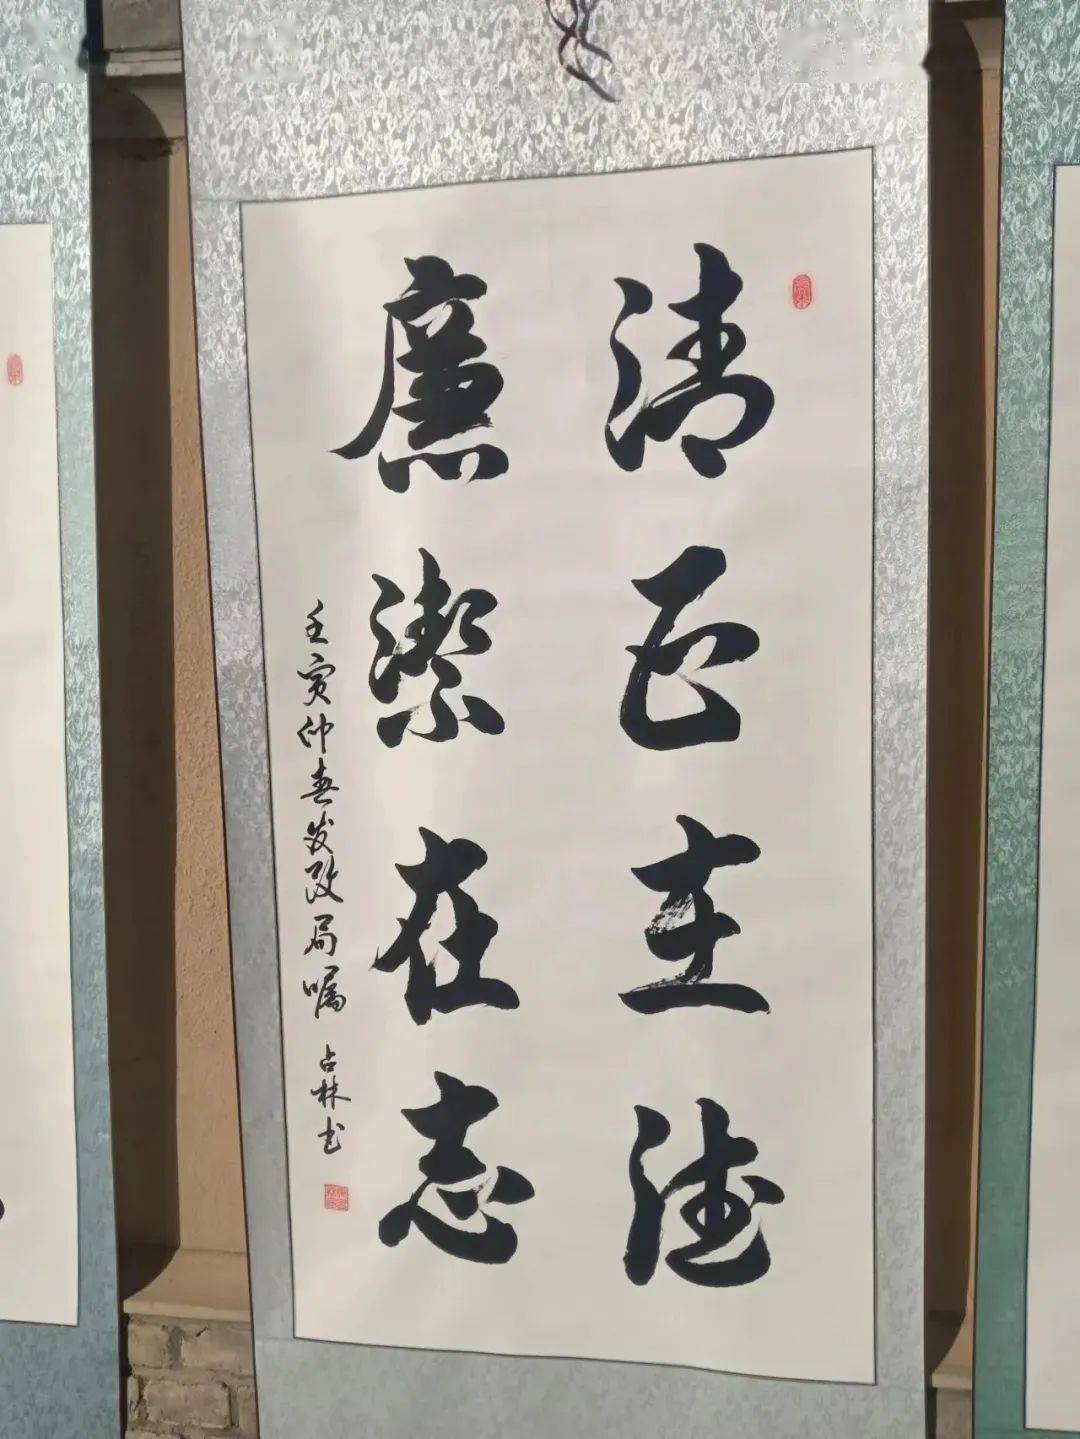 清正在德
廉潔在志
壬寅仲春发改局嘱 占林书